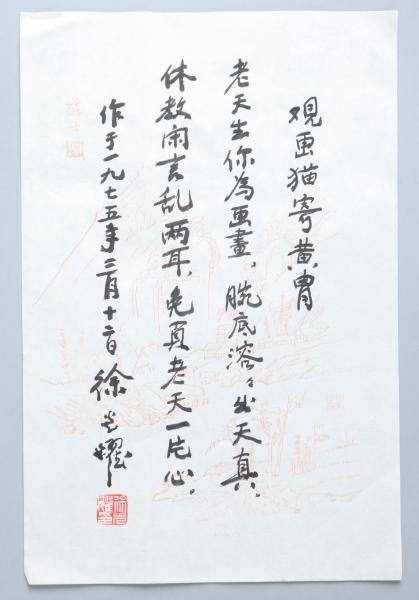 观画猫寄黄胄
老天生你為画畫，腕底溶々出天真。
休教闲言乱两耳，免负老天一片心。
作于一九七五年三月十二日 徐光耀